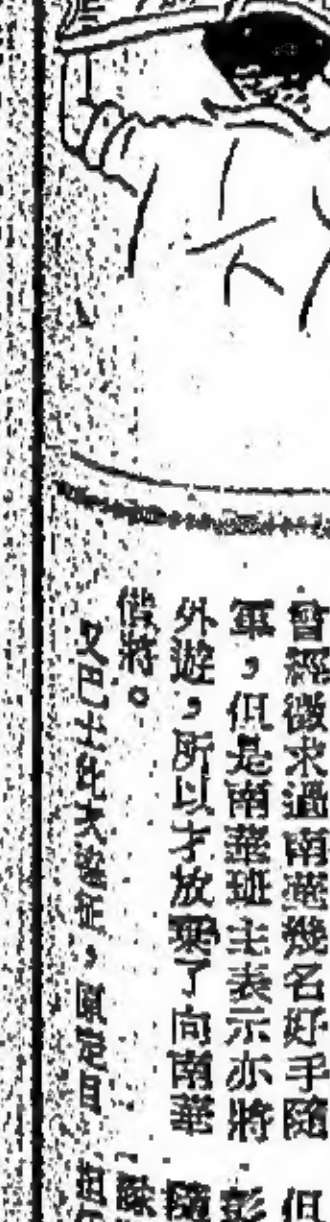 曾經徵求過南華幾名好手隨
軍,但是南華班主表示亦將
外遊,所以才放棄了向南華
借將。
又巴士此次遠征,原定目
但
彭
隨
隊
担